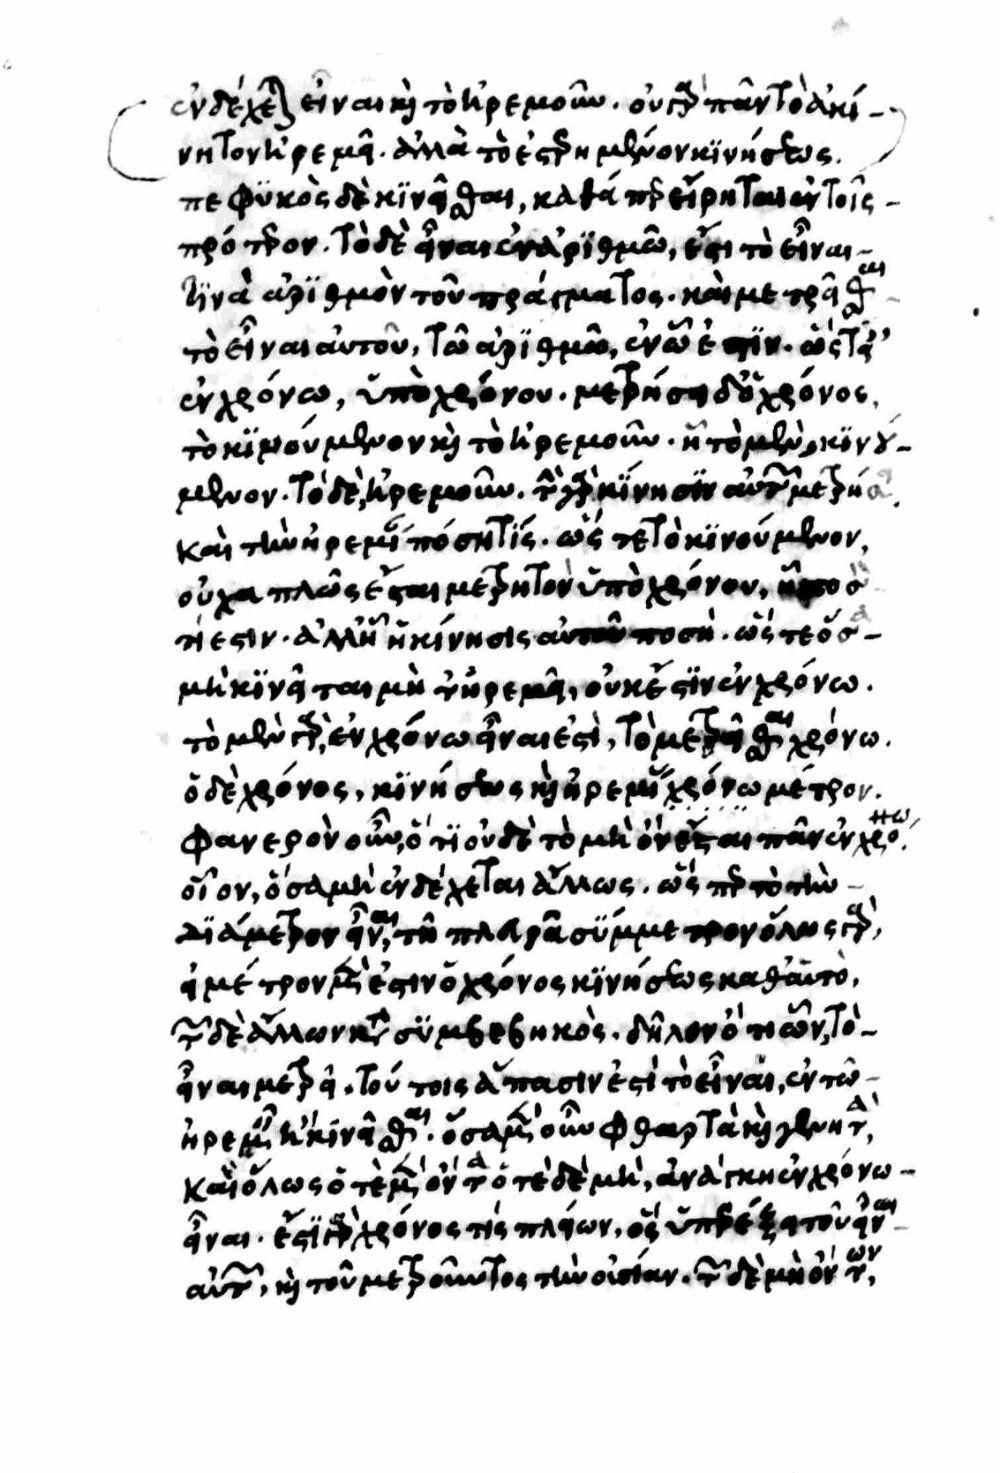 ἐνδέχεται εἶναι καὶ τὸ ἠρεμοῦν. οὐ γὰρ πᾶν τὸ ἀκί-
νητον ἠρεμεῖ. ἀλλὰ τὸ ἐστερημένον κϊνήσεως.
πεφϋκὸς δὲ κϊνεῖσθαι, καθάπερ εἴρηται ἐν τοῖς
πρότερον. τὸ δὲ εἶναι ἐν ἀρϊθμῶ, ἐστι τὸ εἶναι
τϊνὰ ἀρϊθμὸν τοῦ πράγματος. καὶ μετρεῖσθαι
τὸ εἶναι αὐτοῦ, τῶ ἀρϊθμῶ, ἐν ὧ ἐστϊν. ὥστ'
ἐν χρόνω, ὑπὸ χρόνου. μετρήσει δ' ὁ χρόνος,
τὸ κϊνούμενον καὶ τὸ ἠρεμοῦν. ἧ τὸ μὲν, κϊνού-
μενον. τὸ δὲ, ἠρεμοῦν. τὴν γὰρ κϊνησϊν αὐτῶν μετρήσει.
καὶ τὴν ἠρεμίαν πόση τίς. ὥστε τὸ κϊνούμενον,
οὐχ ἁπλῶς ἔσται μετρητὸν ὑπὸ χρόνου, ἧ ποσόν
τι ἐστιν. ἀλλ' ἧ ἡ κίνησις αὐτοῦ ποσή. ὥστε ὅσα
μὴ κϊνεῖται μὴτ' ἠρεμεῖ, οὐκ ἔστϊν ἐν χρόνω.
τὸ μὲν γὰρ, ἐν χρόνω εἶναι ἐστὶ, τὸ μετρεῖσθαι χρόνω.
ὁ δὲ χρόνος, κϊνήσεως καὶ ἠρεμίας χρόνω μέτρον.
φανερὸν οὖν, ὅτϊ οὐδὲ τὸ μὴ ὂν ἔσται πᾶν ἐν χρόνω,
οἷον, ὅσα μὴ ἐνδέχεται ἄλλως. ὥσπερ τὸ τὴν
δϊάμετρον εἶναι, τῆ πλευρᾶ σϋμμετρον ὅλως γὰρ,
εἰ μέτρον μέν ἐστιν ὁ χρόνος κϊνήσεως καθ' αὑτὸ,
τῶν δὲ ἄλλων κατὰ σϋμβεβηκὸς. δῆλον ὅτι ὧν, τὸ
εἶναι μετρεῖ. τούτοις ἅπασιν ἐστὶ τὸ εἶναι, ἐν τῶ
ἠρεμεῖν ἢ κϊνεῖσθαι. ὅσα μὲν οὖν φθαρτὰ καὶ γενητὰ,
καὶ ὅλως ὁτὲ μὲν ὄντα ὁτὲ δὲ μὴ, ἀνάγκη ἐν χρόνω
εἶναι. ἔστϊ γὰρ χρόνος τὶς πλείων, ὃς ὑπερέξει τοῦ εἶναι
αὐτῶν, καὶ τοῦ μετροῦντος τὴν οὐσίαν. τῶν δὲ μὴ ὄντων,